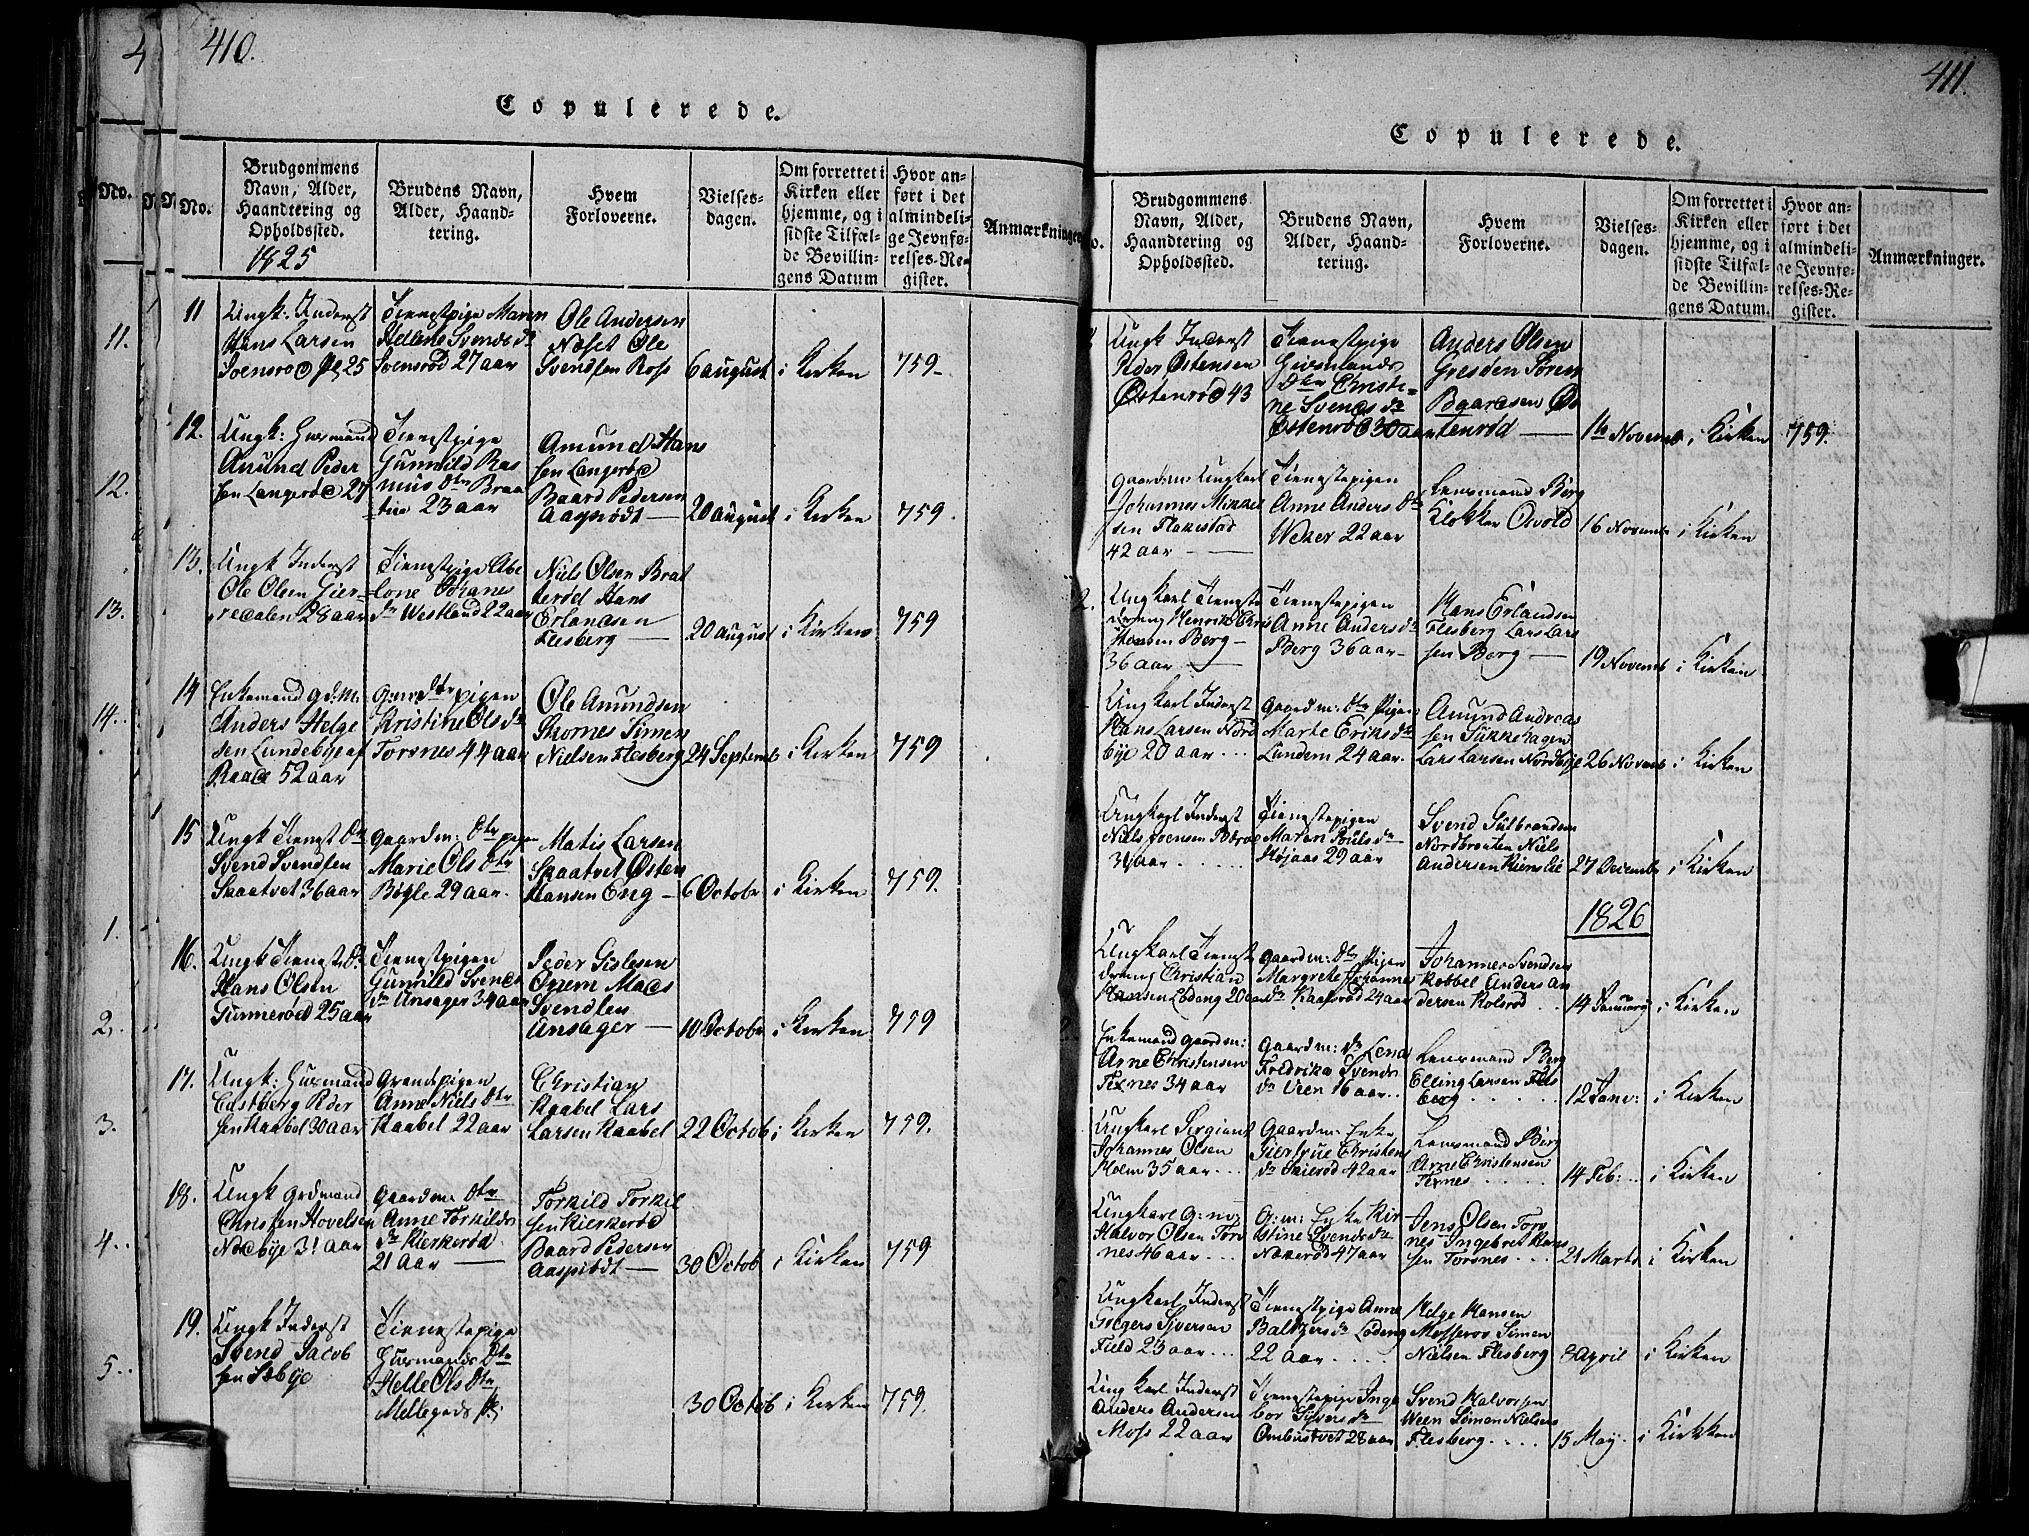 410.
Copulerede.
No.
Brudgommens
Navn, Alder,
Haandtering og
Opholdssted.
1825
Brudens Navn,
Alder, Haand-
tering.
Hvem
Forloverne.
Vielses-
dagen.
Om forrettet i
Kirken eller
hjemme, og i
sidste Tilfæl-
de Bevillin-
gens Datum
Hvor an-
ført i det
almindeli-
ge Jevnfø-
relses-Re-
gister.
Anmærkninger
11
Ungk: Inderst
Hans Larsen
Svensrød 25
Tienestpige Maren
Hellene Svends dr
Svensrød 27 aar
Ole Andersen
Næset Ole
Svendsen Ross
6 august
i Kirken
759-
12.
Ungk: Husmand
Amund Peder
sen Langerød 27
Tienestpige
Gunnild Ras
mus dtr Braa
23 aar
Amund Hans
sen Langerød
Baard Pedersen
Aasprødt
20 august
i Kirken
759.
13.
Ungk Inderst
Ole Olsen Gier-
redalen 28 aar
Tienestpige Abe
lone Johanes
dr Westlund 22 aar
Niels Olsen Brat
terød Hans
Erlandsen
Flesberg
20 august
i Kirken
759
14
Enkemand gd:M:
Anders Helge
sen Lundebye af
Raade 52 aar
dtr pigen
Kristine Ols dr
Torsnes 44 aar
Ole Amundsen
Thornes Simen
Nielsen Flesberg
24 Septemb
i Kirken
759
15
Ungk Tienest dr
Svend Svendsen
Skaatvet 36 aar
gaardm: Dtr pigen
Marie Ols dtr
Bøgle 29 aar.
Matis Larsen
Skaatvet Østen
Hansen Eng
6 Octobr
i Kirken
759.
16.
Ungk Tienest dr
Hans Olsen
Gunnerød 25 aar
Tienestpigen
Gunnild Svends
dr Ansager 34 aar
Peder Gislesen
Onem Mads
Svendsen
Ansager
10 Octobr
i Kirken
759
17.
Ungk: Husmand
Engelbret Peder
sen Kaabel 30 aar
Grandpigen
Anne Niels dtr
Kaabel 22 aar
Christian
Kaabel Lars
Larsen Kaabel
22 Octob
i Kirken
759.
18.
Ungk Grdmand
Christen Hovelsen
Nodbye 31 aar
Gaardm: dtr
Anne Torkilds
dr Kierkerød
21 aar
Torkild Torkil
sen Kierkerød
Baard Pedersen
Aasprødt
30 Octob
i Kirken
759
19.
Ungk Inderst
Svend Jacob
sen Sæbye
Tienestepige
Husmands dtr
Helle Ols dtr
Mellegads
30 Octob
i Kirken
759.
411.
Copulerede.
Brudgommens
Navn, Alder,
Haandtering og
Opholdssted.
Brudens Navn,
Alder, Haand-
tering.
Hvem
Forloverne.
Vielses-
dagen.
Om forrettet i
Kirken eller
hjemme, og i
sidste Tilfæl-
de Bevillin-
gens Datum.
Hvor an-
ført i det
almindeli-
ge Jevnfø-
relses-Re-
gister.
Anmærkninger.
Ungk Inderst
Peder Østensen
Østenrød 43
Tienestpige
dtr Christi-
ne Svends dr
Østenrød 30 aar
Anders Olsen
Gresden Søren
Baardsen Øs
tenrød
Novemb
i Kirken
759.
gaardm: Ungkarl
Johannes Mikkel
sen Flakestad
42 aar
Tienestpigen
Anne Anders dtr
Weker 22 aar
Lensmand Berg
Klokker Osvold
16 Novemb
i Kirken
Ungkarl Tieneste
dreng Henrik Chris
Hansen Berg
36 aar
Tienestepigen
Anne Anders dr
Berg 36 aar
Hans Erlandsen
Flesberg Lars Lars
sen Berg
19 Novemb
i Kirken
Ungkarl Inderst
Hans Larsen Nord
bye 20 aar
gaardm: dtr Pigen
Marte Eriks dr
Lundem 24 aar.
Amund Andreas
sen Sukkehagen
Lars Larsen Nordbye
26 Novemb
i Kirken
Ungkarl Inderst
Niels Svensen
34 aar
Tienestepigen
Maren Pouls dr
Højaas 29 aar
Svend Gulbrandsen
Nordbraaten Niels
Andersen Kiens lie
27 Decemb
i Kirken
1826
Ungkarl Tienest
dreng Christian
Hansen Lødeng 20 aar
gaardm: Dtr Pigen
Margrete Johannes
dr Kaalsrød 24 aar
Johannes Svendsen
Kobbel Anders An
dersen Kolsrød
14 January
i Kirken
Enkemand gaardm:
Arne Christensen
Texnes 34 aar
gaardm: dr Lena
Fredrika Svends
dr Veen 16 aar
Lensmand Berg
Elling Larsen Fles
berg
12 Janv:
i Kirken
Ungkarl Sergiant
Johannes Olsen
Holm 35 aar
Gaardm: Enke
Giertrue Christens
dr Skierød 42 aar
Lensmand Berg
Arne Christensen
Texnes
14 Feb:
i Kirken
Ungkarl G: m:
Halvor Olsen Tors
nes 46 aar
G: m: Enke Kir
stine Svends dr
Nøkerød 47 aar
Jens Olsen Tors
nes Ingebret Hans
sen Torsnes
21 Marts
i Kirken
Ungkarl Inderst
Golgers Syversen
Field 23 aar
Tienestpige Anne
Baltzers dr Lødeng
22 aar
Helge Hansen
Mosserov Simen
Nielsen Flesberg
8 April
i Kirken
Ungkarl Inderst
Anders Andersen
Moss 22 aar
Tienestepige Inge
bor Syvers dr
Ombustvet 28 aar
Svend Halvorsen
Ween Simon Nielsen
Flesberg
15 May
i Kirken